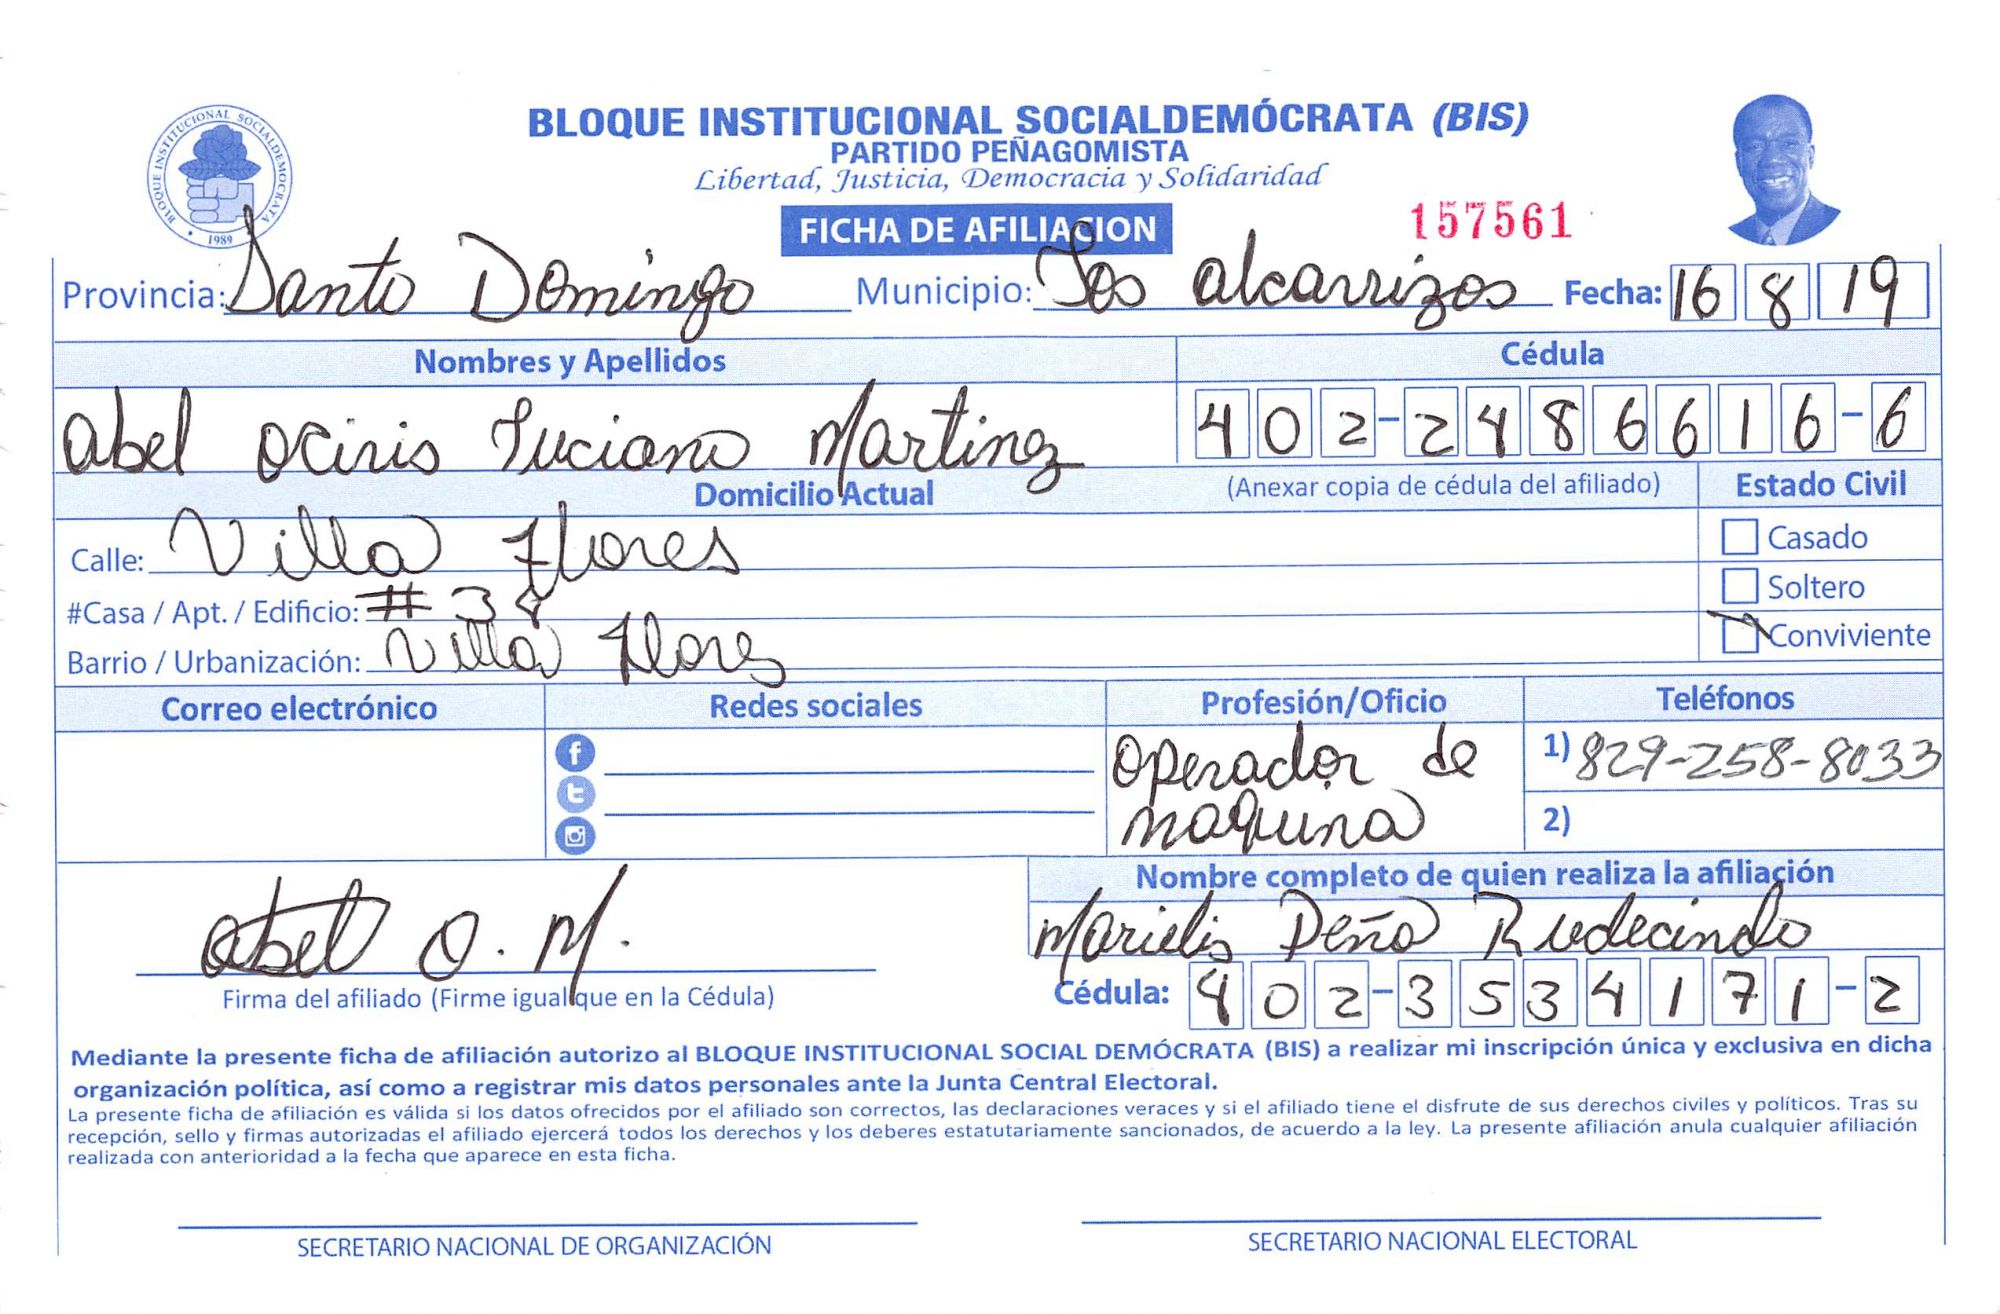 BLOQUE INSTITUCIONAL SOCIALDEMÓCRATA (BIS)
PARTIDO PEÑAGOMISTA
Libertad, Justicia, Democracia y Solidaridad
BLOQUE INSTITUCIONAL SOCIALDEMOCRATA
1989
FICHA DE AFILIACION
157561
Provincia: Santo Domingo Municipio: Los alcarrizos Fecha: 16 8 19
Nombres y Apellidos Cédula
abel Ociris Luciano Martinez 402-2486616-6
Domicilio Actual (Anexar copia de cédula del afiliado) Estado Civil
Calle: Villa Flores Casado
#Casa / Apt. / Edificio: # 38 Soltero
Barrio / Urbanización: Villa Flores Conviviente
Correo electrónico Redes sociales Profesión/Oficio Teléfonos
Operador de maquina
1) 829-258-8033
2)
Nombre completo de quien realiza la afiliación
abel O. M. Marielis Peña Rudecindo
Firma del afiliado (Firme igual que en la Cédula) Cédula: 402-3534171-2
Mediante la presente ficha de afiliación autorizo al BLOQUE INSTITUCIONAL SOCIAL DEMÓCRATA (BIS) a realizar mi inscripción única y exclusiva en dicha
organización política, así como a registrar mis datos personales ante la Junta Central Electoral.
La presente ficha de afiliación es válida si los datos ofrecidos por el afiliado son correctos, las declaraciones veraces y si el afiliado tiene el disfrute de sus derechos civiles y políticos. Tras su
recepción, sello y firmas autorizadas el afiliado ejercerá todos los derechos y los deberes estatutariamente sancionados, de acuerdo a la ley. La presente afiliación anula cualquier afiliación
realizada con anterioridad a la fecha que aparece en esta ficha.
SECRETARIO NACIONAL DE ORGANIZACIÓN SECRETARIO NACIONAL ELECTORAL